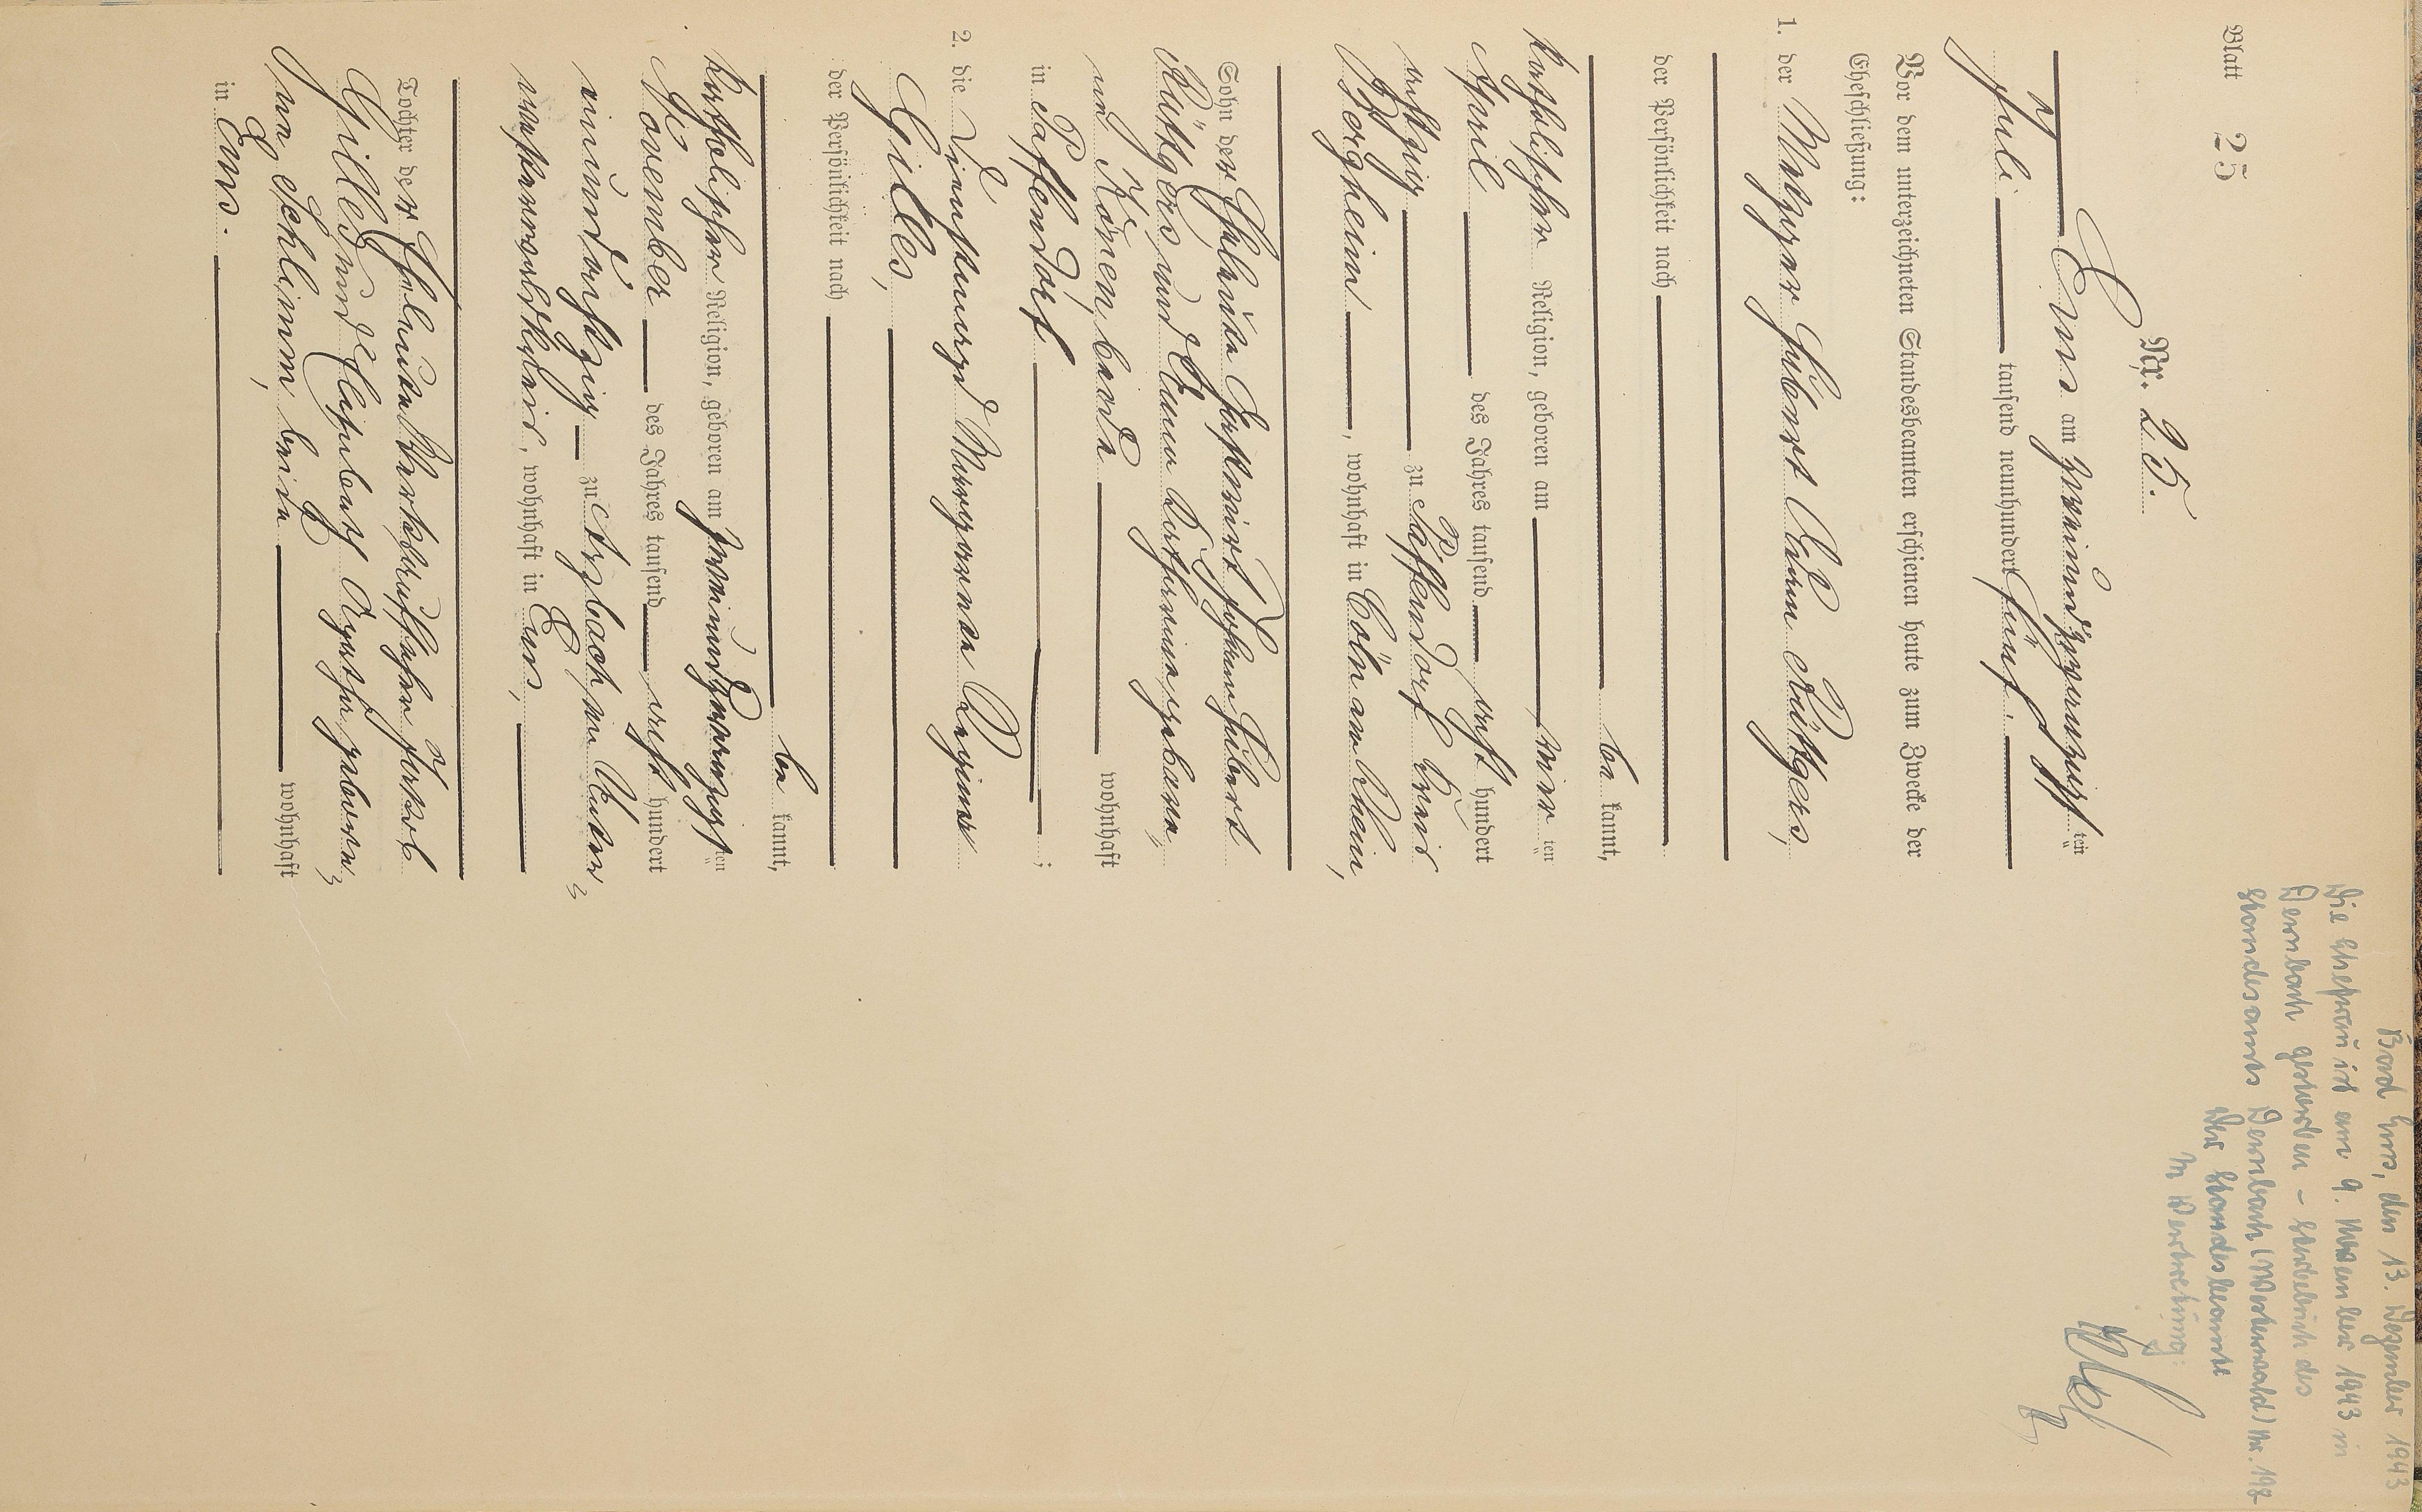 Blatt 25
Nr. 25.
Ems am zweiundzwanzigsten
Juli tausend neunhundert fünf.
Vor dem unterzeichneten Standesbeamten erschienen heute zum Zwecke der
Eheschließung:
1. der Metzger Hubert Rütgers,
der Persönlichkeit nach
be kannt,
katholischer Religion, geboren am ten
April des Jahres tausend acht hundert
achtzig zu Paffendorf Kreis
Bergheim, wohnhaft in Cöln am Rhein,
Sohn der Eheleute Johann Hubert
Rüttgers und Anna Katharina geborene
Könen, beide wohnhaft
in Paffendorf;
2. die Dienstmagd Margareta Regina
Gilles,
der Persönlichkeit nach
be kannt,
katholischer Religion, geboren am zweiundzwanzigsten
November des Jahres tausend acht hundert
einundachtzig zu Arzbach im Unter„
westerwaldkreis, wohnhaft in Ems,
Tochter der Eheleute
Gilles und Agatha geborene
Schlimm, beide wohnhaft
in Ems.
Bad Ems, den 13. Dezember 1943
Die Ehefrau ist am 9. November 1943 in
Dernbach gestorben - Sterbebuch des
Standesamts Dernbach (Westerwald) Nr. 198
Der Standesbeamte
In Vertretung: